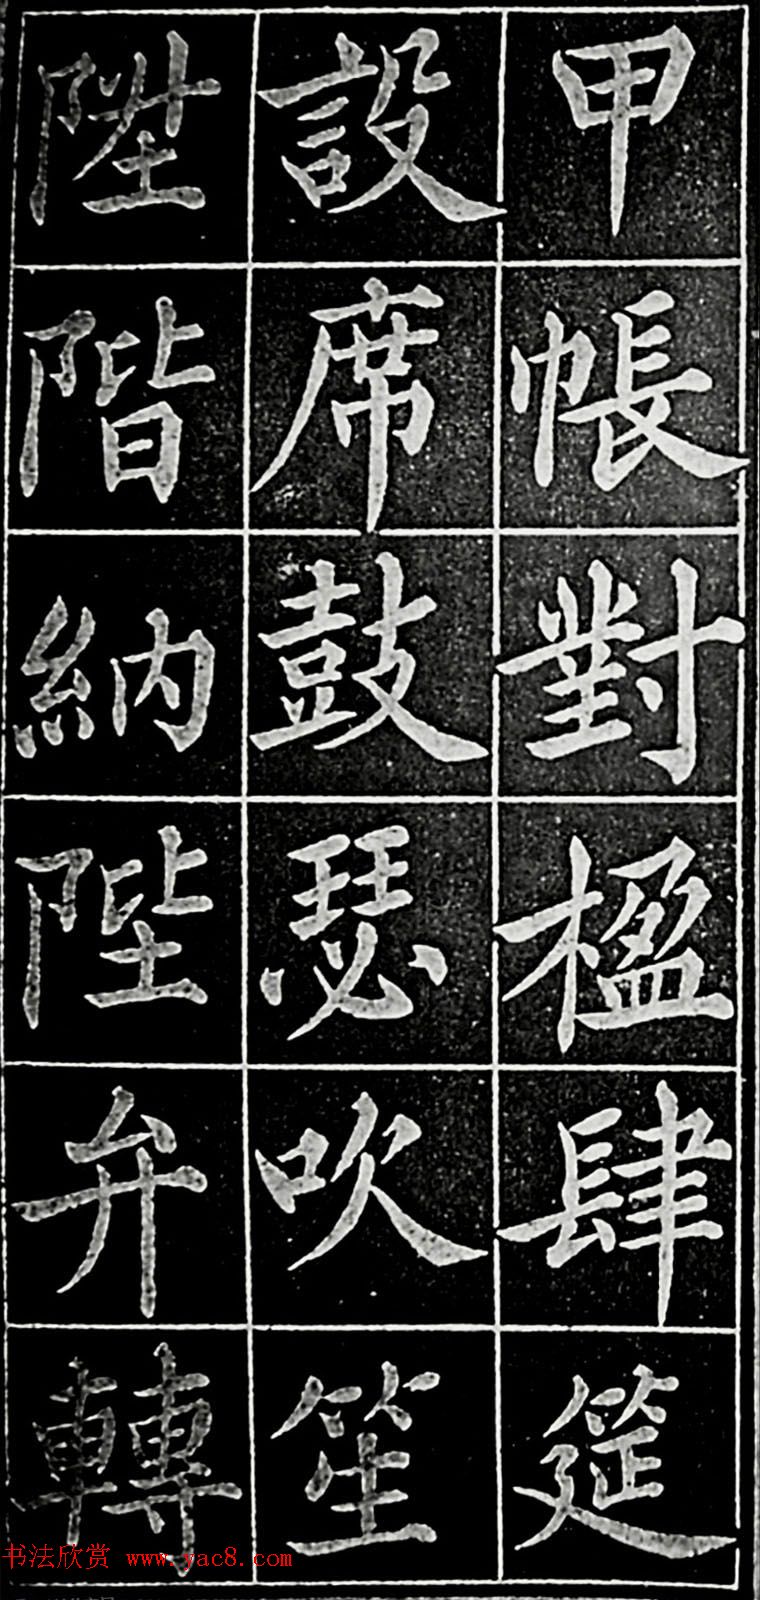 甲帳對楹肆筵
設席鼓瑟吹笙
陞階納陛弁轉
书法欣赏 www.yac8.com